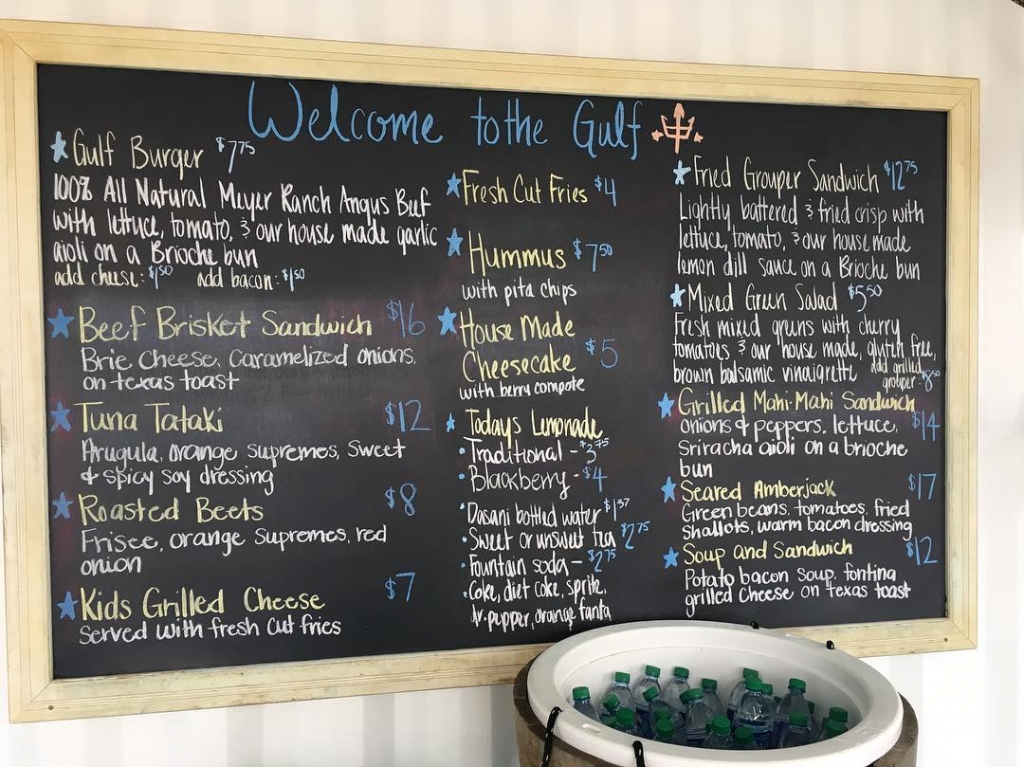 Welcome to the Gulf
Gulf Burger $7.75
100% All Natural Meyer Ranch Angus Beef
with lettuce, tomato, & our house made garlic
aioli on a Brioche bun
add cheese: $1.50 add bacon: $1.50
Beef Brisket Sandwich $16
Brie Cheese, Caramelized onions,
on texas toast
Tuna Tataki $12
Arugula, orange supremes, sweet
& spicy soy dressing
Roasted Beets $8
Frisee, orange supremes, red
onion
Kids Grilled Cheese $7
Served with fresh cut fries
Fresh Cut Fries $4
Hummus $7.50
with pita chips
House Made
Cheesecake $5
with berry compote
Todays Lemonade
• Traditional - $3.75
• Blackberry - $4
• Dasani bottled water $1.37
• Sweet or unsweet tea $2.75
• Fountain soda - $2.75
• Coke, diet coke, sprite,
dr. pepper, orange fanta
Fried Grouper Sandwich $12.75
Lightly battered & fried crisp with
lettuce, tomato, & our house made
lemon dill sauce on a Brioche bun
Mixed Green Salad $5.50
Fresh mixed greens with cherry
tomatoes & our house made, gluten free,
brown balsamic vinaigrette add grilled
grouper: $8.50
Grilled Mahi-Mahi Sandwich
onions & peppers, lettuce, $14
Sriracha aioli on a brioche
bun
Seared Amberjack $17
Green beans, tomatoes, fried
shallots, warm bacon dressing
Soup and Sandwich $12
Potato bacon soup, fontina
grilled cheese on texas toast